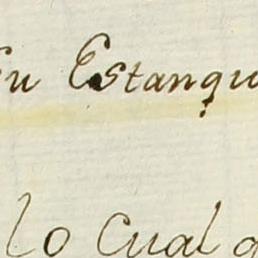 su Estanqu
lo Cual a